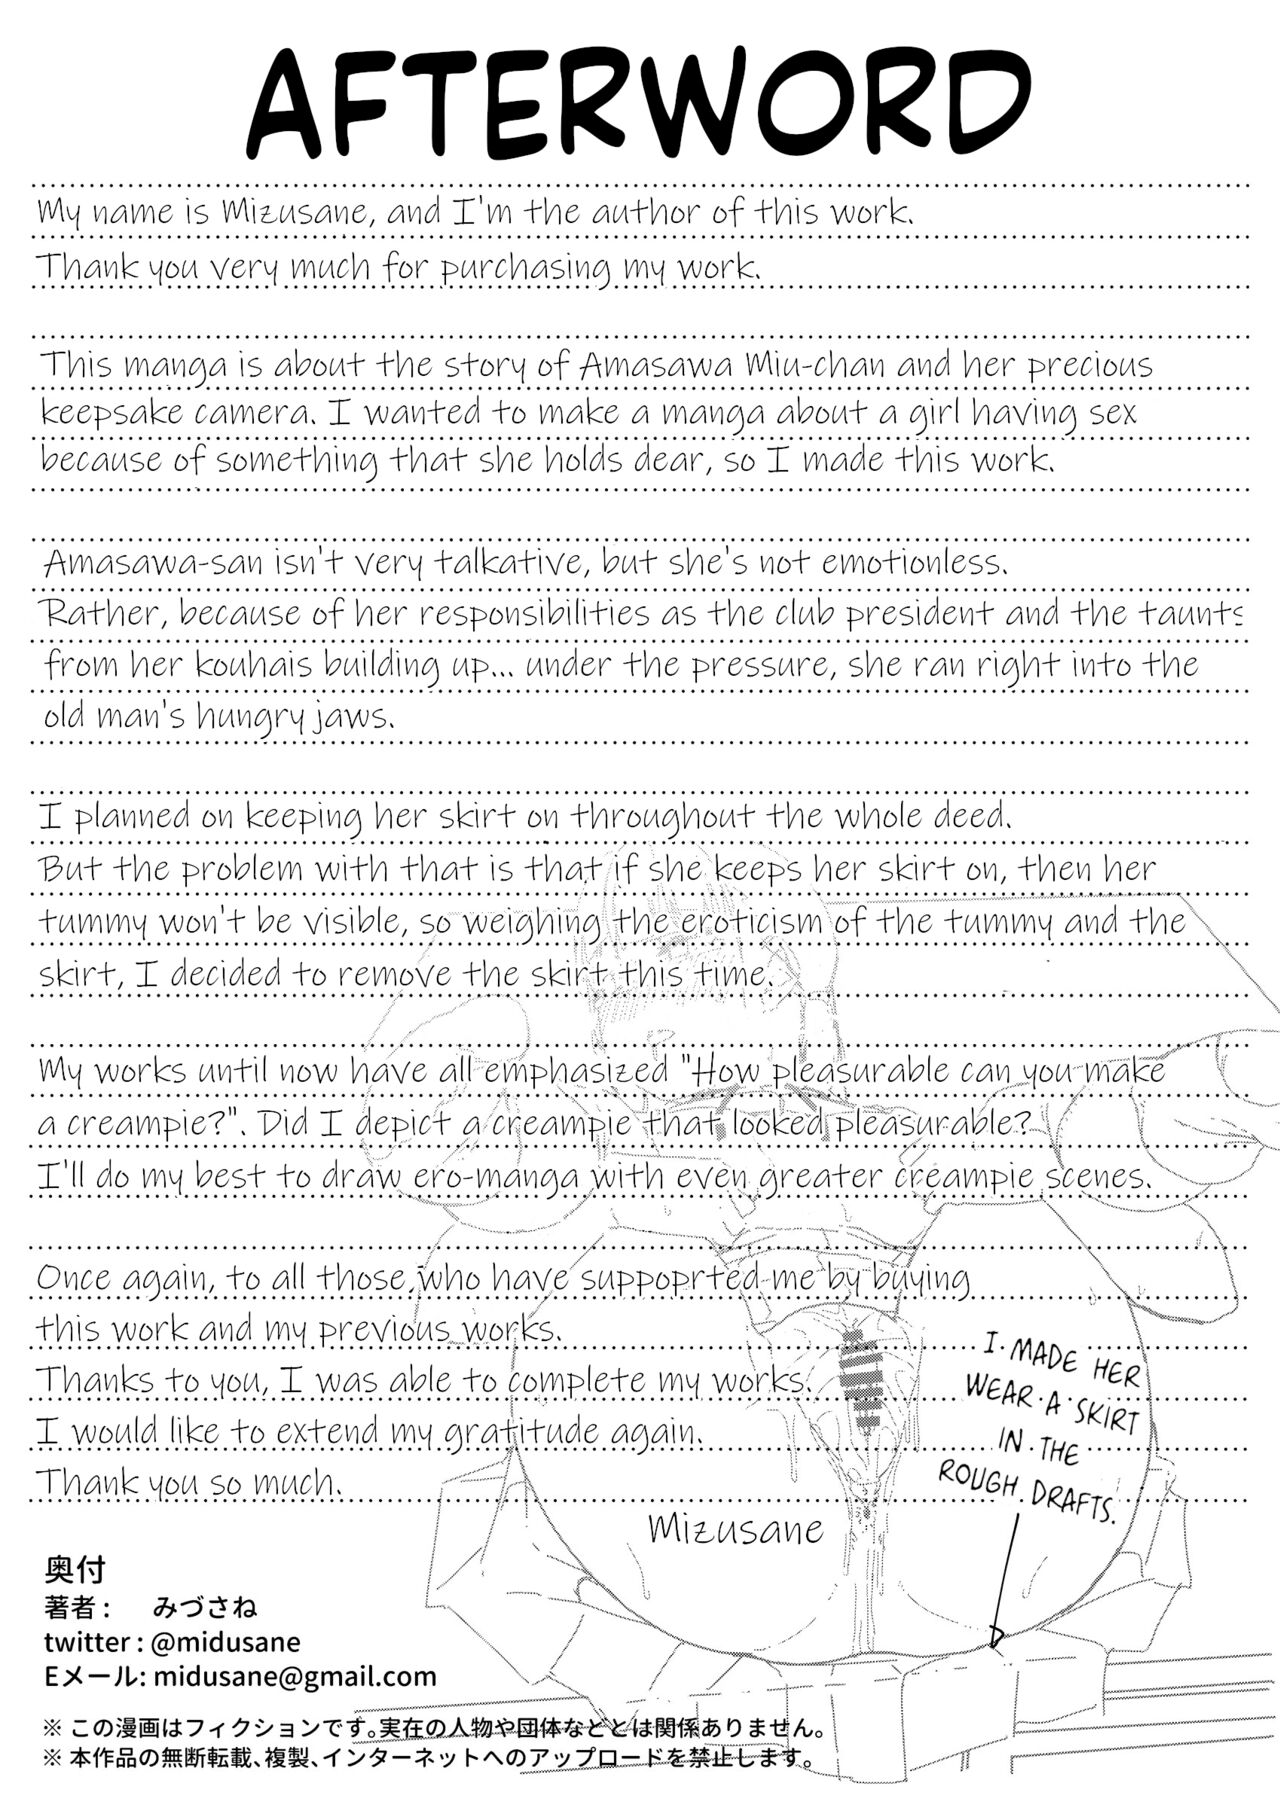 AFTERWORD
My name is Mizusane, and I'm the author of this work.
Thank you very much for purchasing my work.
This manga is about the story of Amasawa Miu-chan and her precious
keepsake camera. I wanted to make a manga about a girl having sex
because of something that she holds dear, so I made this work.
Amasawa-san isn't very talkative, but she's not emotionless.
Rather, because of her responsibilities as the club president and the taunts
from her kouhais building up... under the pressure, she ran right into the
old man's hungry jaws.
I planned on keeping her skirt on throughout the whole deed.
But the problem with that is that if she keeps her skirt on, then her
tummy won't be visible, so weighing the eroticism of the tummy and the
skirt, I decided to remove the skirt this time.
My works until now have all emphasized "How pleasurable can you make
a creampie?". Did I depict a creampie that looked pleasurable?
I'll do my best to draw ero-manga with even greater creampie scenes.
Once again, to all those who have suppoprted me by buying
this work and my previous works.
Thanks to you, I was able to complete my works.
I would like to extend my gratitude again.
Thank you so much.
Mizusane
I MADE HER
WEAR A SKIRT
IN THE
ROUGH DRAFTS.
奥付
著者 : みづさね
twitter : @midusane
Eメール: midusane@gmail.com
※ この漫画はフィクションです。実在の人物や団体などとは関係ありません。
※ 本作品の無断転載、複製、インターネットへのアップロードを禁止します。